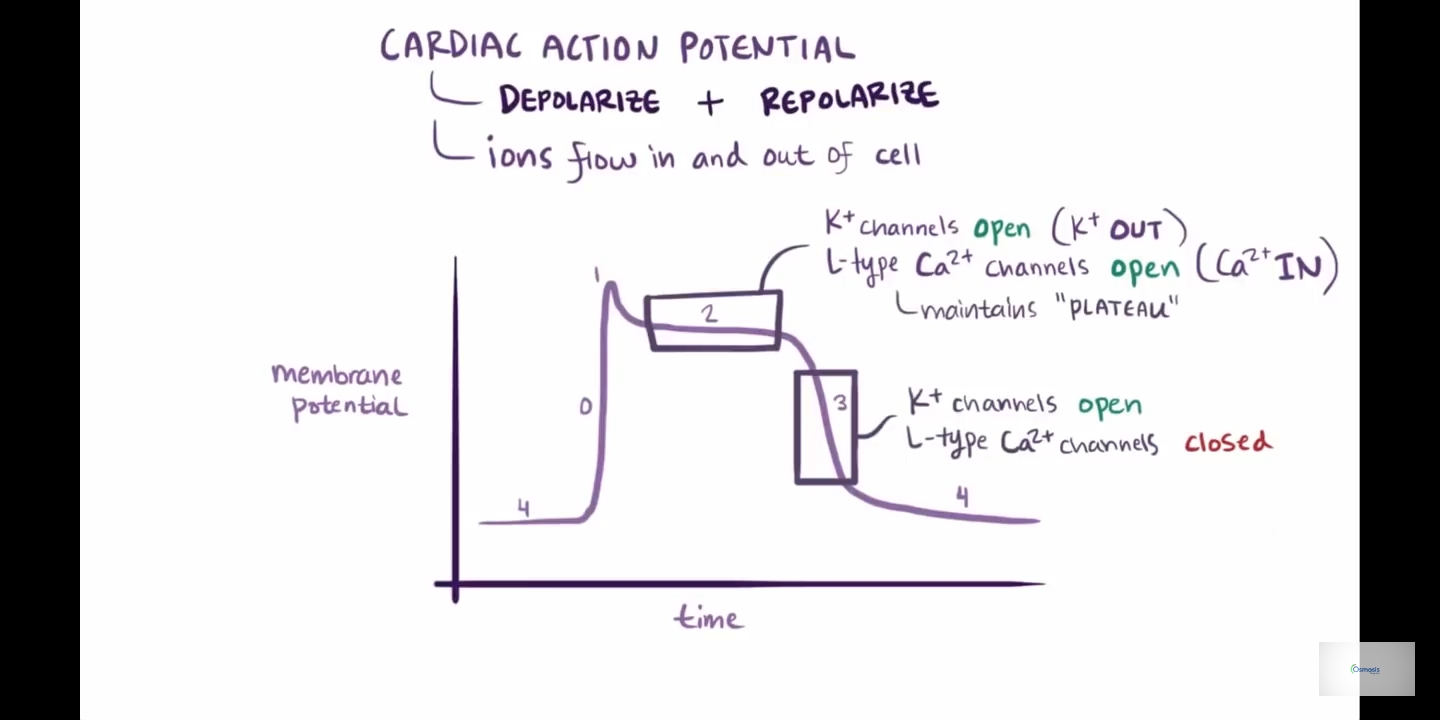 CARDIAC ACTION POTENTIAL
DEPOLARIZE + REPOLARIZE
ions flow in and out of cell
K+ channels open (K+ OUT)
L-type Ca2+ channels open (Ca2+ IN)
maintains "PLATEAU"
1
2
membrane
potential
0
3
K+ channels open
L-type Ca2+ channels closed
4
4
time
Osmosis